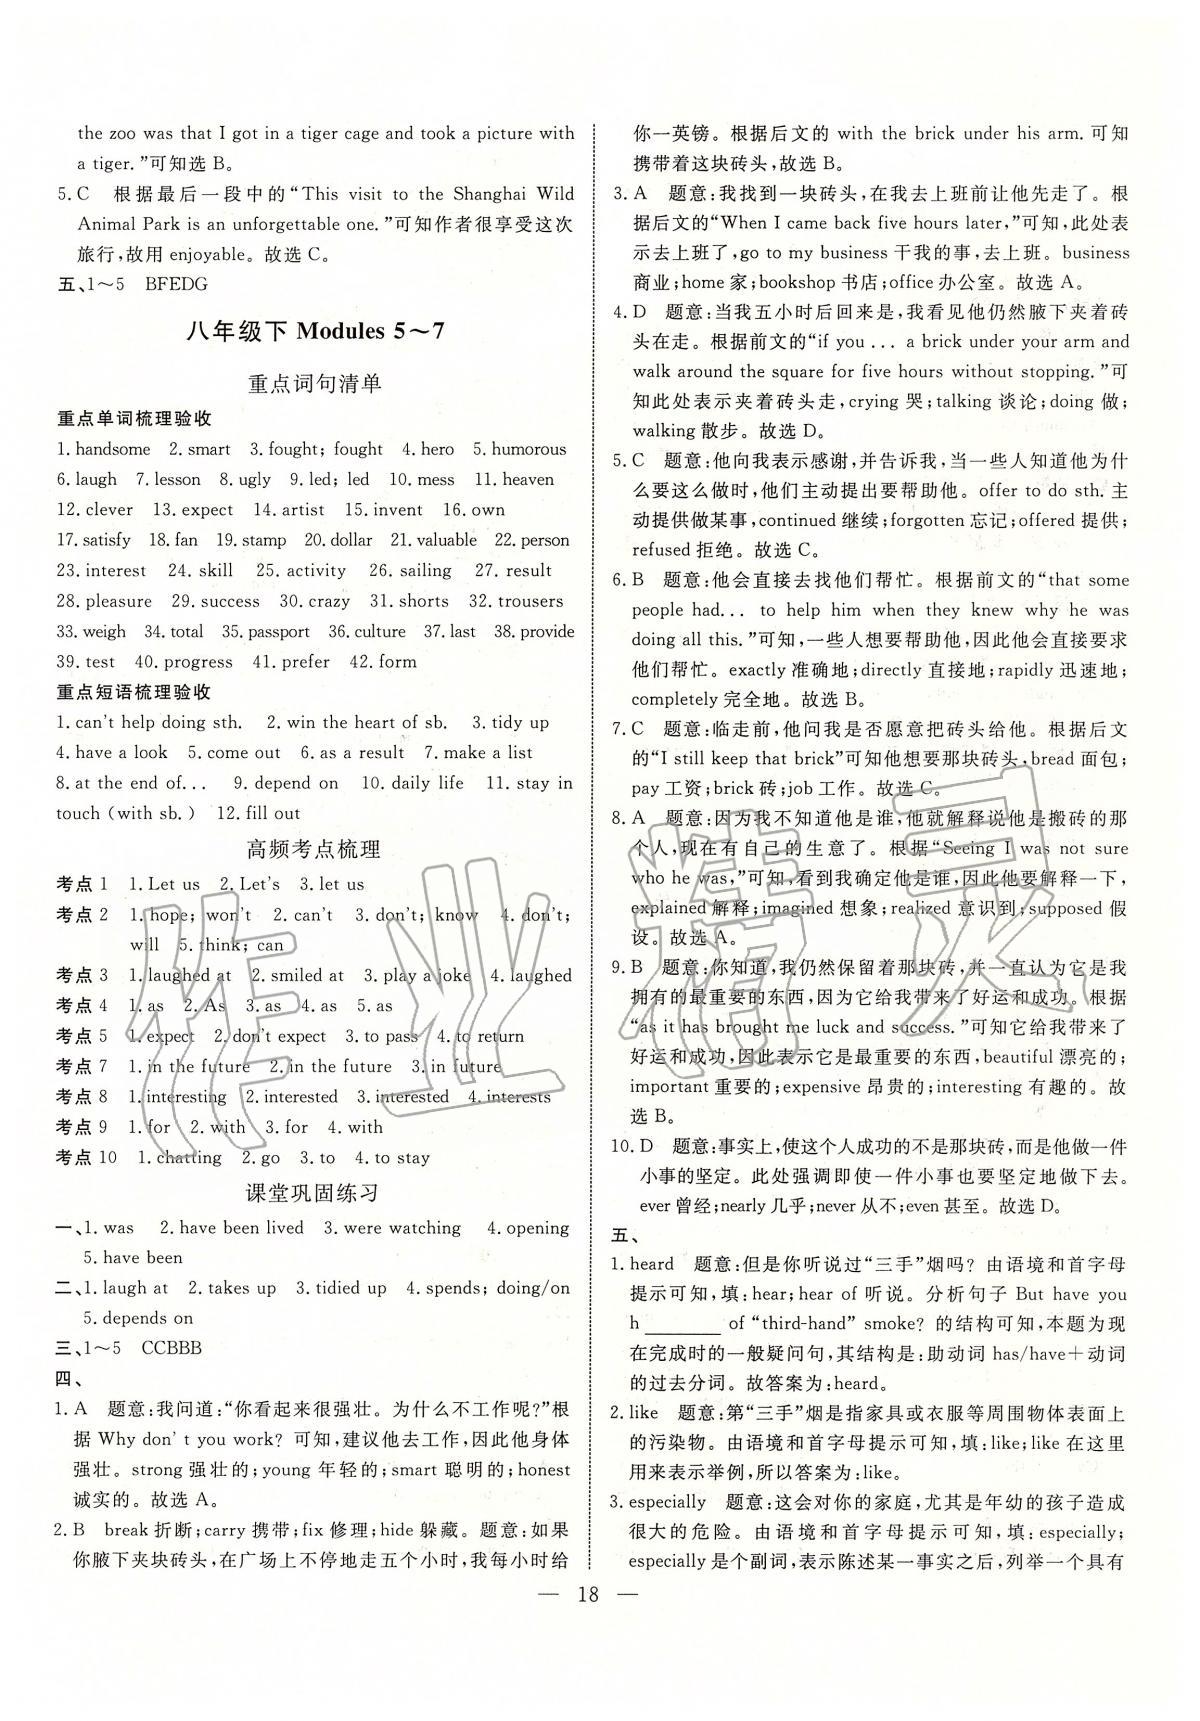 the zoo was that I got in a tiger cage and took a picture with
a tiger.”可知选 B。
5. C　根据最后一段中的“This visit to the Shanghai Wild
Animal Park is an unforgettable one.”可知作者很享受这次
旅行,故用 enjoyable。故选 C。
五、1～5　BFEDG
八年级下 Modules 5～7
重点词句清单
重点单词梳理验收
1. handsome　2. smart　3. fought; fought　4. hero　5. humorous
6. laugh　7. lesson　8. ugly　9. led; led　10. mess　11. heaven
12. clever　13. expect　14. artist　15. invent　16. own
17. satisfy　18. fan　19. stamp　20. dollar　21. valuable　22. person
23. interest　24. skill　25. activity　26. sailing　27. result
28. pleasure　29. success　30. crazy　31. shorts　32. trousers
33. weigh　34. total　35. passport　36. culture　37. last　38. provide
39. test　40. progress　41. prefer　42. form
重点短语梳理验收
1. can't help doing sth.　2. win the heart of sb.　3. tidy up
4. have a look　5. come out　6. as a result　7. make a list
8. at the end of...　9. depend on　10. daily life　11. stay in
touch (with sb.)　12. fill out
高频考点梳理
考点 1　1. Let us　2. Let's　3. let us
考点 2　1. hope; won't　2. can't　3. don't; know　4. don't;
will　5. think; can
考点 3　1. laughed at　2. smiled at　3. play a joke　4. laughed
考点 4　1. as　2. As　3. as　4. as　5. as
考点 5　1. expect　2. don't expect　3. to pass　4. to return
考点 7　1. in the future　2. in the future　3. in future
考点 8　1. interesting　2. interested　3. interested　4. interests
考点 9　1. for　2. with　3. for　4. with
考点 10　1. chatting　2. go　3. to　4. to stay
课堂巩固练习
一、1. was　2. have been lived　3. were watching　4. opening
5. have been
二、1. laugh at　2. takes up　3. tidied up　4. spends; doing/on
5. depends on
三、1～5　CCBBB
四、
1. A　题意:我问道:“你看起来很强壮。为什么不工作呢?”根
据 Why don't you work? 可知,建议他去工作,因此他身体
强壮。strong 强壮的;young 年轻的;smart 聪明的;honest
诚实的。故选 A。
2. B　break 折断;carry 携带;fix 修理;hide 躲藏。题意:如果
你腋下夹块砖头,在广场上不停地走五个小时,我每小时给
你一英镑。根据后文的 with the brick under his arm. 可知
携带着这块砖头,故选 B。
3. A　题意:我找到一块砖头,在我去上班前让他先走了。根
据后文的“When I came back five hours later,”可知,此处表
示去上班了,go to my business 干我的事,去上班。business
商业;home 家;bookshop 书店;office 办公室。故选 A。
4. D　题意:当我五小时后回来是,我看见他仍然腋下夹着砖
头在走。根据前文的“if you ... a brick under your arm and
walk around the square for five hours without stopping.”可
知此处表示夹着砖头走,crying 哭;talking 谈论;doing 做;
walking 散步。故选 D。
5. C　题意:他向我表示感谢,并告诉我,当一些人知道他为什
么要这么做时,他们主动提出要帮助他。offer to do sth. 主
动提供做某事,continued 继续;forgotten 忘记;offered 提供;
refused 拒绝。故选 C。
6. B　题意:他会直接去找他们帮忙。根据前文的“that some
people had... to help him when they knew why he was
doing all this.”可知,一些人想要帮助他,因此他会直接要求
他们帮忙。exactly 准确地;directly 直接地;rapidly 迅速地;
completely 完全地。故选 B。
7. C　题意:临走前,他问我是否愿意把砖头给他。根据后文
的“I still keep that brick”可知他想要那块砖头,bread 面包;
pay 工资;brick 砖;job 工作。故选 C。
8. A　题意:因为我不知道他是谁,他就解释说他是搬砖的那
个人,现在有自己的生意了。根据“Seeing I was not sure
who he was,”可知,看到我确定他是谁,因此他要解释一下,
explained 解释;imagined 想象;realized 意识到;supposed 假
设。故选 A。
9. B　题意:你知道,我仍然保留着那块砖,并一直认为它是我
拥有的最重要的东西,因为它给我带来了好运和成功。根据
“as it has brought me luck and success.”可知它给我带来了
好运和成功,因此表示它是最重要的东西,beautiful 漂亮的;
important 重要的;expensive 昂贵的;interesting 有趣的。故
选 B。
10. D　题意:事实上,使这个人成功的不是那块砖,而是他做一件
小事的坚定。此处强调即使一件小事也要坚定地做下去。
ever 曾经;nearly 几乎;never 从不;even 甚至。故选 D。
五、
1. heard　题意:但是你听说过“三手”烟吗? 由语境和首字母
提示可知,填:hear;hear of 听说。分析句子 But have you
h ________ of “third-hand” smoke? 的结构可知,本题为现
在完成时的一般疑问句,其结构是:助动词 has/have＋动词
的过去分词。故答案为:heard。
2. like　题意:第“三手”烟是指家具或衣服等周围物体表面上
的污染物。由语境和首字母提示可知,填:like;like 在这里
用来表示举例,所以答案为:like。
3. especially　题意:这会对你的家庭,尤其是年幼的孩子造成
很大的危险。由语境和首字母提示可知,填:especially;
especially 是个副词,表示陈述某一事实之后,列举一个具有
— 18 —
作业精灵